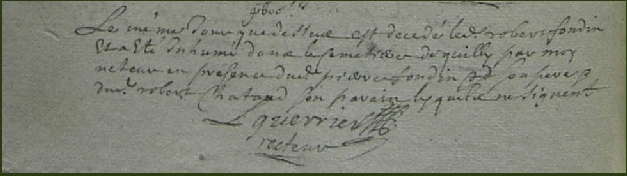 Le même jour que dessus est decedé led. robert fondin
Et a eté Inhumé dans le Cemetiere de quilly par moy
recteur en presence dud. pierre fondin son pere
du. robert Chataud son parain lesquels ne signent
L guerrier
recteur